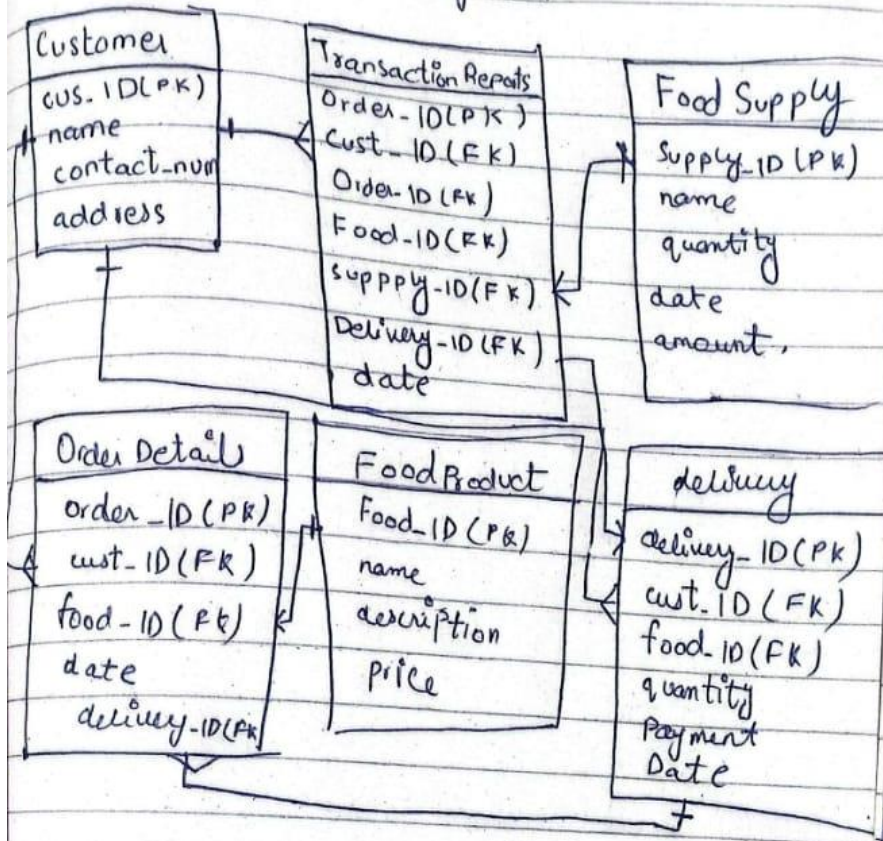 Customer
cus_ID(PK)
name
contact_num
address
Transaction Reports
Order_ID(PK)
Cust_ID(FK)
Order_ID(FK)
Food_ID(FK)
suppply_ID(FK)
Delivery_ID(FK)
date
Food Supply
Supply_ID(PK)
name
quantity
date
amount.
Order Detail
order_ID(PK)
cust_ID(FK)
food_ID(FK)
date
delivery_ID(FK
Food Product
Food_ID(PK)
name
description
price
delivery
delivery_ID(PK)
cust_ID(FK)
food_ID(FK)
quantity
Payment
Date